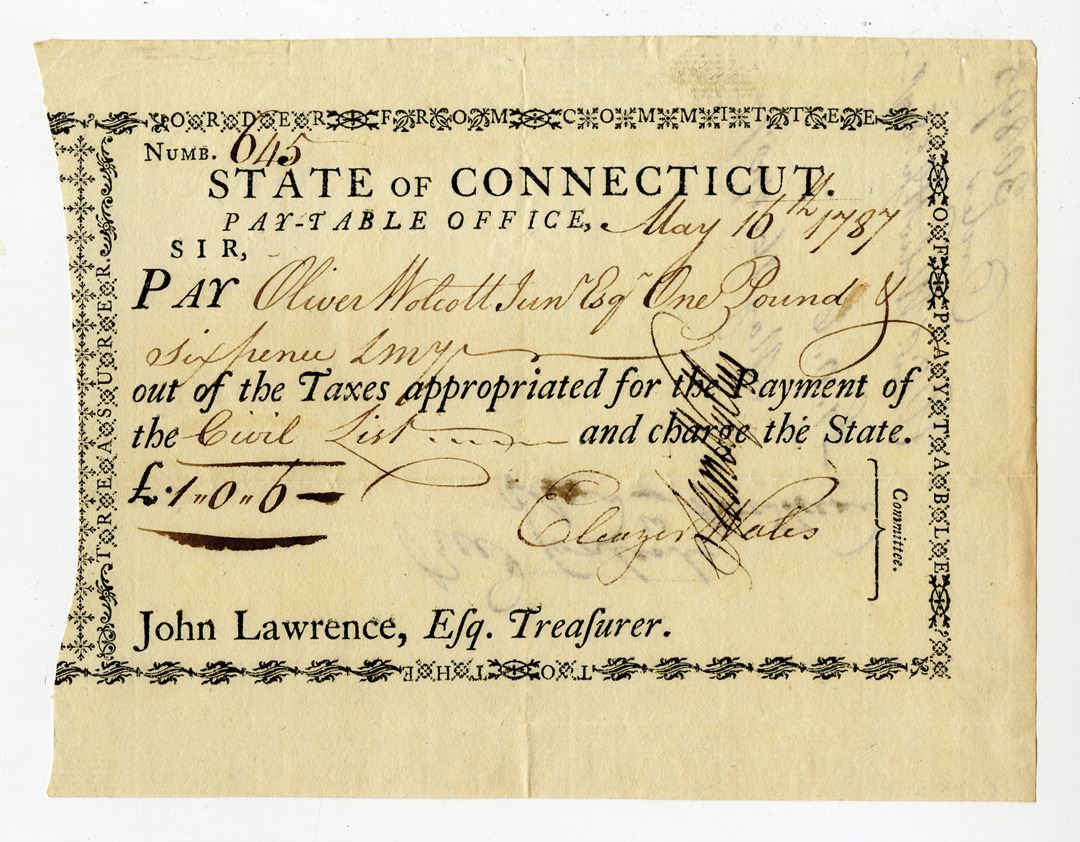 ORDER FROM COMMITTEE
OF PAY TABLE
TO THE
TREASURER.
NUMB. 645
STATE OF CONNECTICUT.
PAY-TABLE OFFICE, May 16th 1787
SIR,
PAY Oliver Wolcott Junr Esqr One Pound &
sixpence Lmy
out of the Taxes appropriated for the Payment of
the Civil List and charge the State.
£.1"0"6
Eleazer Wales
Committee.
John Lawrence, Eſq. Treaſurer.